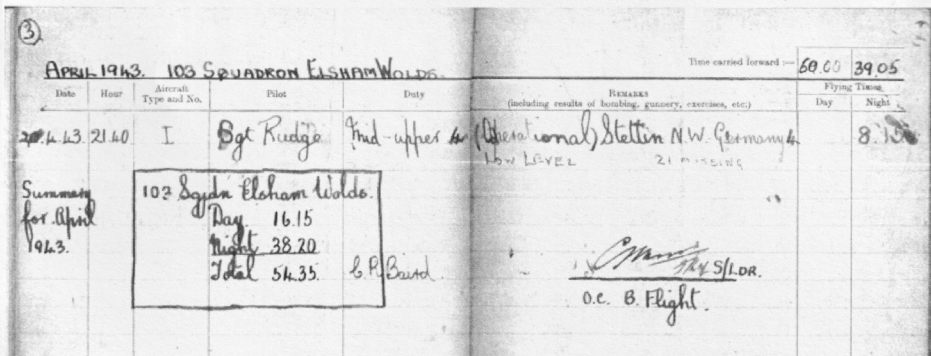 3
APRIL 1943. 103 SQUADRON ELSHAM WOLDS.
Time carried forward :— 60.00 39.05
Date Hour Aircraft Type and No. Pilot Duty REMARKS (including results of bombing, gunnery, exercises, etc.) Flying Times Day Night
.4.43 21.40 I Sgt Rudge Mid-upper (Operational) Stettin N.W. Germany 8.15
LOW LEVEL 21 MISSING
Summary for April 1943.
103 Sqdn Elsham Wolds.
Day 16.15
Night 38.20
Total 54.35 Baird.
S/LDR.
O.C. B. Flight.